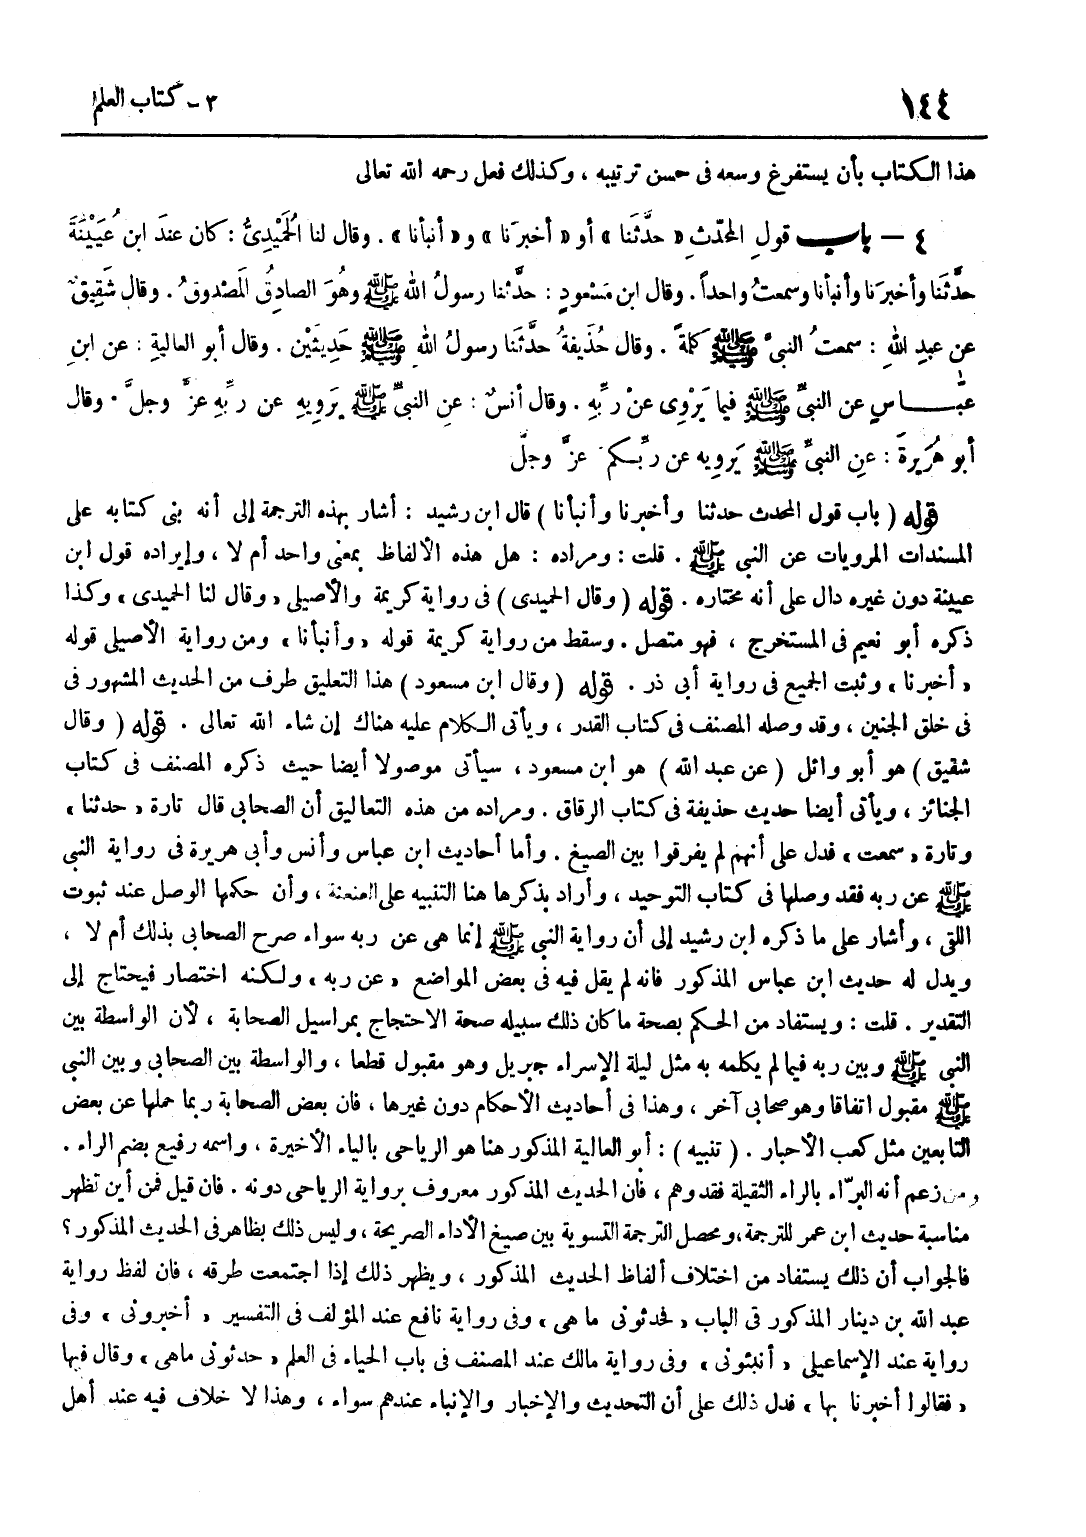 ١٤٤
٣ - كتاب العلم
هذا الكتاب بأن يستفرغ وسعه فى حسن ترتيبه ، وكذلك فعل رحمه الله تعالى
٤ - باب قولِ المحدّثِ « حدَّثَنا » أو « أخبرَنا » و« أنبأنا » . وقال لنا الحُمَيْدِىُّ : كان عندَ ابن عُيَيْنةَ
حدَّثَنا وأخبرَنا وأنبأنا وسمعتُ واحداً . وقال ابن مَسْعودٍ : حدَّثنا رسولُ الله ﷺ وهُوَ الصادِقُ المَصْدوقُ . وقال شَقِيقٌ
عن عبدِ اللهِ : سمعتُ النبىَّ ﷺ كلمةً . وقال حُذَيفةُ حدَّثَنا رسولُ الله ﷺ حَدِيثَيْن . وقال أبو العالية : عن ابنِ
عبَّاسٍ عن النبىِّ ﷺ فيما يَرْوِى عنْ ربِّهِ . وقال أنسٌ : عنِ النبىِّ ﷺ يَرويهِ عن ربِّهِ عزَّ وجلَّ . وقال
أبو هُرَيرةَ : عنِ النبىِّ ﷺ يَرويه عن ربِّكم عزَّ وجلّ
قوله ( باب قول المحدث حدثنا وأخبرنا وأنبأنا ) قال ابن رشيد : أشار بهذه الترجمة إلى أنه بنى كتابه على
المسندات المرويات عن النبى ﷺ . قلت : ومراده : هل هذه الألفاظ بمعنى واحد أم لا ، وإيراده قول ابن
عيينة دون غيره دال على أنه مختاره . قوله ( وقال الحميدى ) فى رواية كريمة والأصيلى « وقال لنا الحميدى » وكذا
ذكره أبو نعيم فى المستخرج ، فهو متصل . وسقط من رواية كريمة قوله « وأنبأنا » ومن رواية الأصيلى قوله
« أخبرنا » وثبت الجميع فى رواية أبى ذر . قوله ( وقال ابن مسعود ) هذا التعليق طرف من الحديث المشهور فى
فى خلق الجنين ، وقد وصله المصنف فى كتاب القدر ، ويأتى الكلام عليه هناك إن شاء الله تعالى . قوله ( وقال
شقيق ) هو أبو وائل ( عن عبد الله ) هو ابن مسعود ، سيأتى موصولا أيضا حيث ذكره المصنف فى كتاب
الجنائز ، ويأتى أيضا حديث حذيفة فى كتاب الرقاق . ومراده من هذه التعاليق أن الصحابى قال تارة « حدثنا »
وتارة « سمعت » فدل على أنهم لم يفرقوا بين الصيغ . وأما أحاديث ابن عباس وأنس وأبى هريرة فى رواية النبى
ﷺ عن ربه فقد وصلها فى كتاب التوحيد ، وأراد بذكرها هنا التنبيه على العنعنة ، وأن حكمها الوصل عند ثبوت
اللقى ، وأشار على ما ذكره ابن رشيد إلى أن رواية النبى ﷺ إنما هى عن ربه سواء صرح الصحابى بذلك أم لا ،
ويدل له حديث ابن عباس المذكور فانه لم يقل فيه فى بعض المواضع « عن ربه » ولكنه اختصار فيحتاج إلى
التقدير . قلت : ويستفاد من الحكم بصحة ما كان ذلك سبيله صحة الاحتجاج بمراسيل الصحابة ، لأن الواسطة بين
النبى ﷺ وبين ربه فيما لم يكلمه به مثل ليلة الإسراء جبريل وهو مقبول قطعا ، والواسطة بين الصحابى وبين النبى
ﷺ مقبول اتفاقا وهو صحابى آخر ، وهذا فى أحاديث الأحكام دون غيرها ، فان بعض الصحابة ربما حملها عن بعض
التابعين مثل كعب الأحبار . ( تنبيه ) : أبو العالية المذكور هنا هو الرياحى بالياء الأخيرة ، واسمه رفيع بضم الراء .
ومن زعم أنه البرّاء بالراء الثقيلة فقد وهم ، فان الحديث المذكور معروف برواية الرياحى دونه . فان قيل فمن أين تظهر
مناسبة حديث ابن عمر للترجمة ، ومحصل الترجمة التسوية بين صيغ الأداء الصريحة ، وليس ذلك بظاهر فى الحديث المذكور ؟
فالجواب أن ذلك يستفاد من اختلاف ألفاظ الحديث المذكور ، ويظهر ذلك إذا اجتمعت طرقه ، فان لفظ رواية
عبد الله بن دينار المذكور فى الباب « فحدثونى ما هى » وفى رواية نافع عند المؤلف فى التفسير « أخبرونى » وفى
رواية عند الإسماعيلى « أنبئونى » وفى رواية مالك عند المصنف فى باب الحياء فى العلم « حدثونى ماهى » وقال فيها
« فقالوا أخبرنا بها » فدل ذلك على أن التحديث والإخبار والإنباء عندهم سواء ، وهذا لا خلاف فيه عند أهل